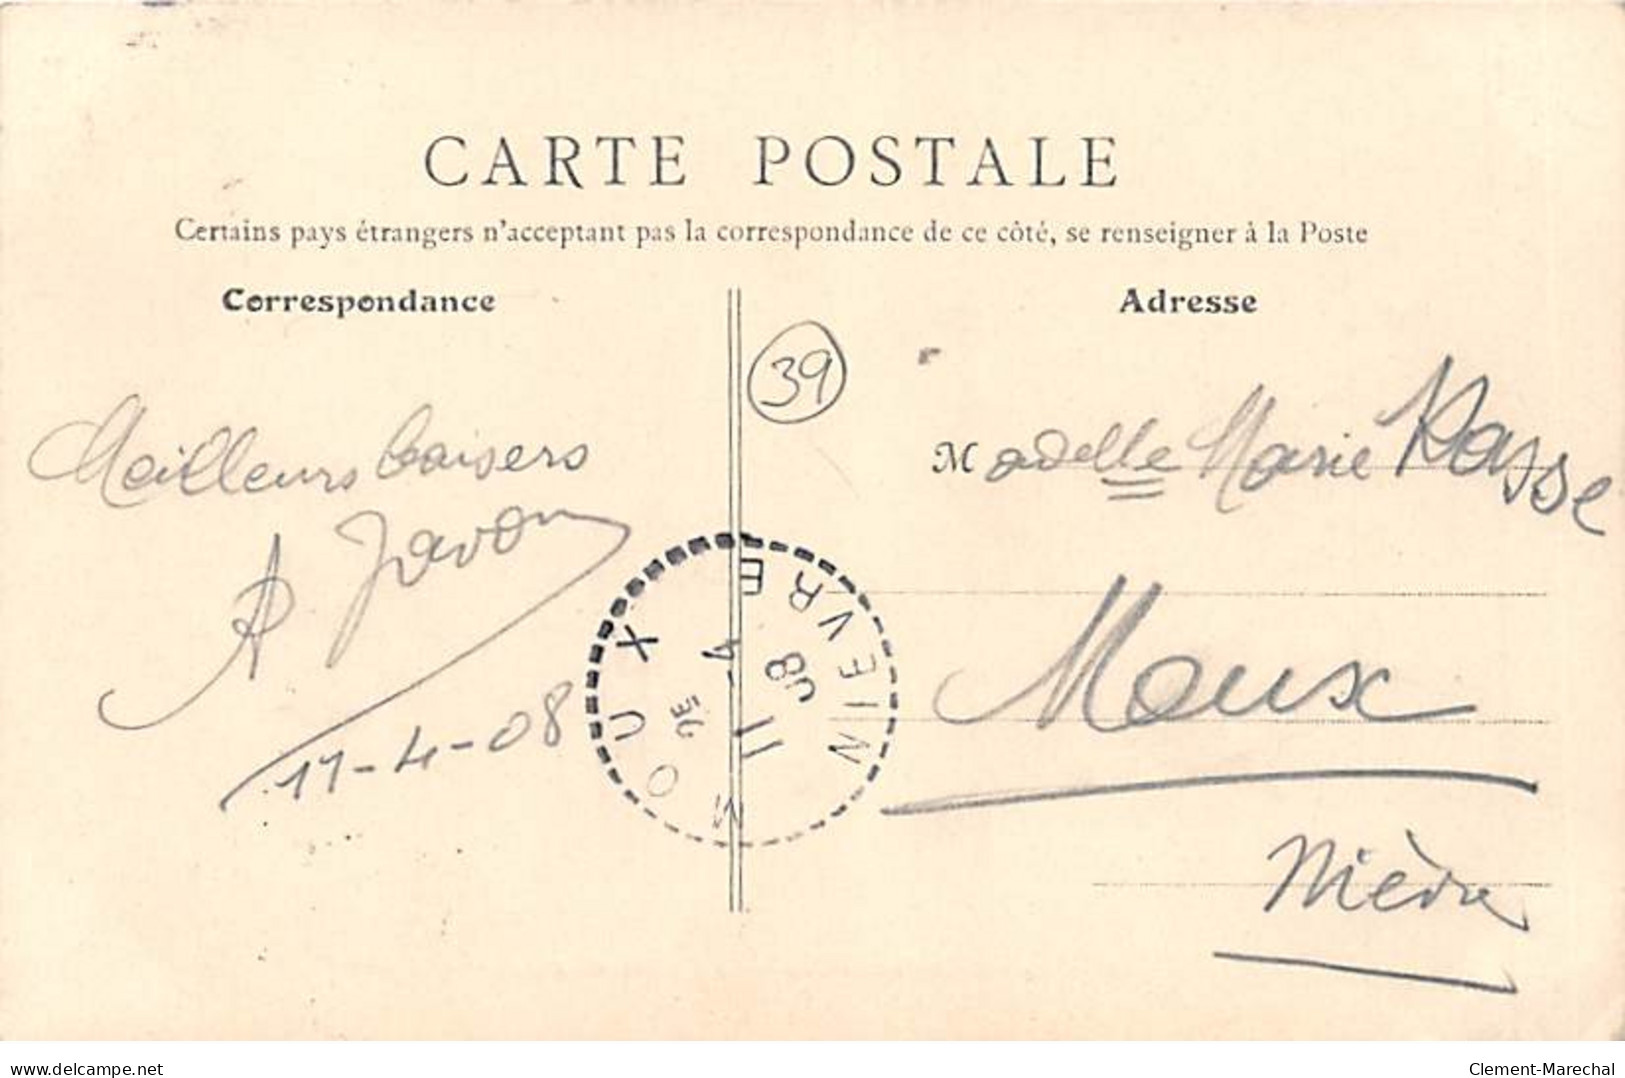 CARTE POSTALE
Certains pays étrangers n'acceptant pas la correspondance de ce côté, se renseigner à la Poste
Correspondance
Meilleurs baisers
A. Javon
11-4-08
39
MOUX
NIEVRE
11 -4
08
Adresse
Madelle Marie Rasse
Moux
Nièvre
delcampe.net
Clement-Marechal